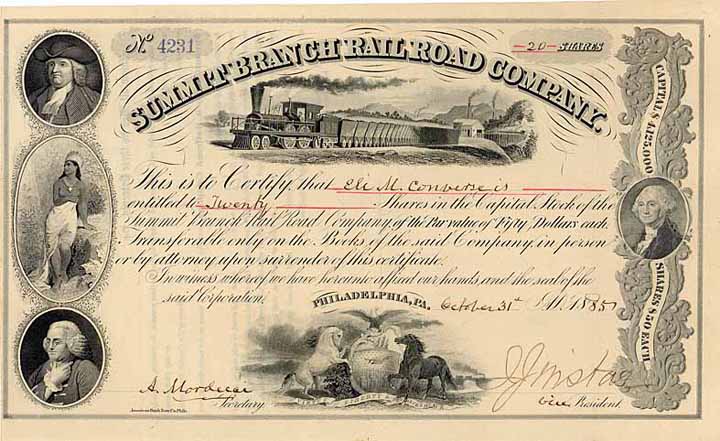 No 4231
—20— SHARES
SUMMIT BRANCH RAIL ROAD COMPANY.
CAPITAL $4,125,000
This is to Certify, that Eli M. Converse is
entitled to Twenty Shares in the Capital Stock of the
Summit Branch Rail Road Company, of the Par value of Fifty Dollars each.
Transferable only on the Books of the said Company, in person
or by attorney upon surrender of this certificate.
In witness whereof we have hereunto affixed our hands, and the seal of the
said Corporation.
PHILADELPHIA, PA. October 31st A.D. 1885
SHARES $50 EACH
A. Mordecai
Secretary.
Vice President.
American Bank Note Co. Phila.